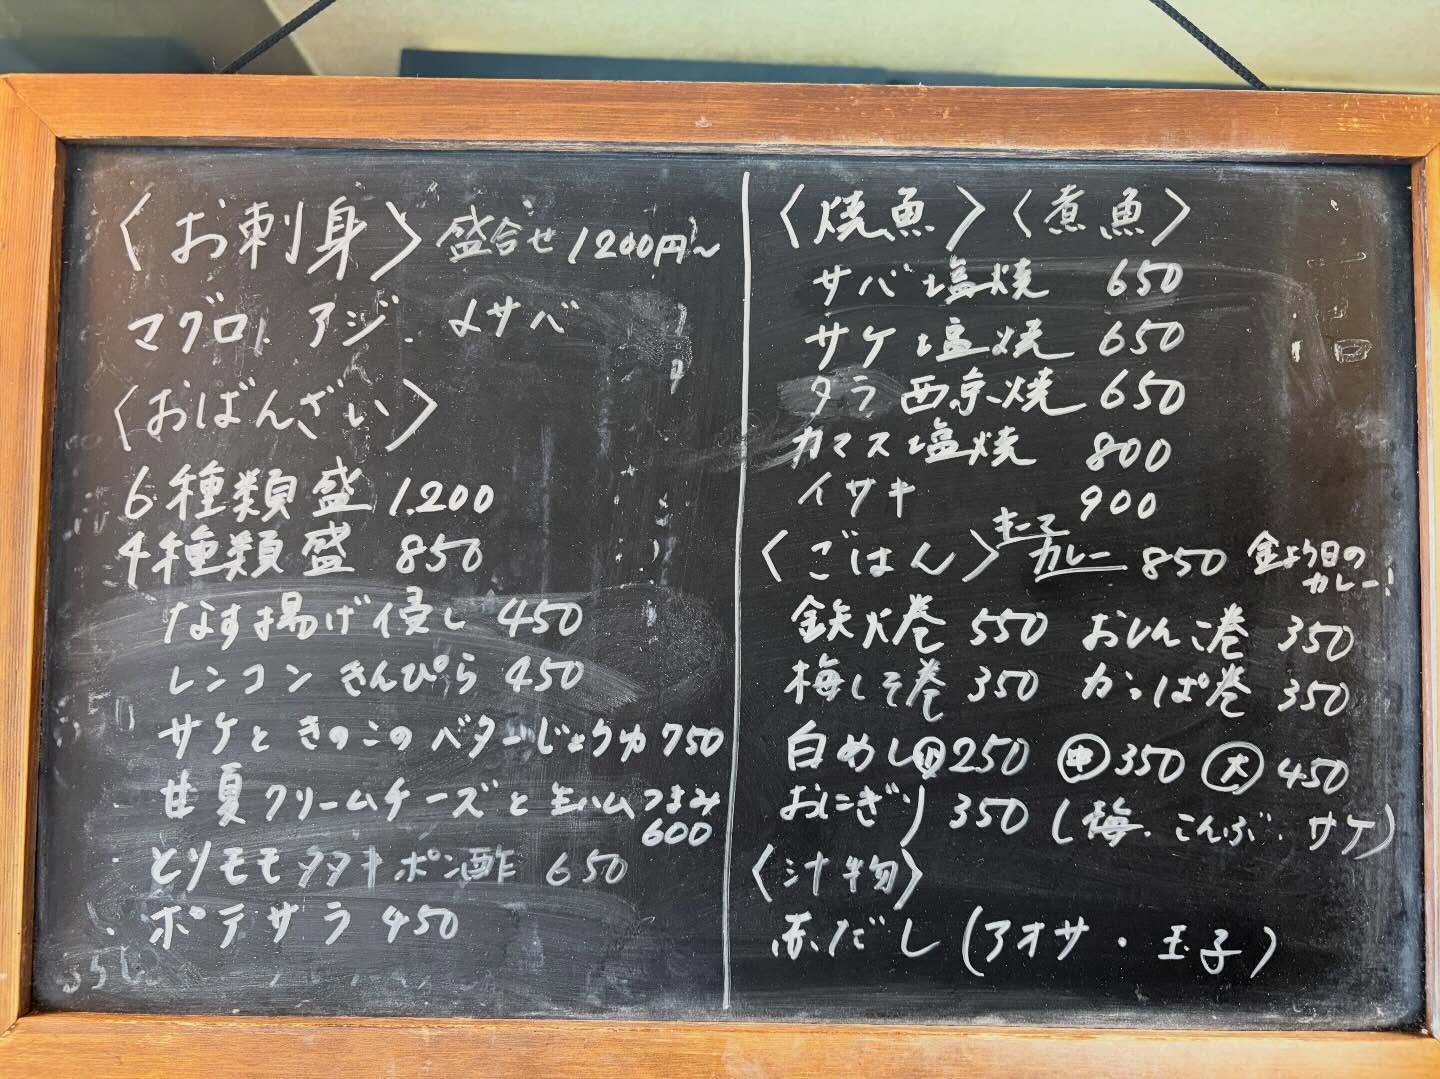 〈お刺身〉盛合せ1200円~
マグロ. アジ. 〆サバ
〈おばんざい〉
6種類盛 1.200
4種類盛 850
なす揚げ浸し 450
レンコンきんぴら 450
サケときのこのバターじょうゆ 750
甘夏クリームチーズと生ハムつまみ
600
とりモモタタキポン酢 650
ポテサラ 450
〈焼魚〉〈煮魚〉
サバ塩焼 650
サケ塩焼 650
タラ西京焼 650
カマス塩焼 800
イサキ 900
〈ごはん〉キーマカレー 850 金より日の
カレー!
鉄火巻 550 おしんこ巻 350
梅しそ巻 350 かっぱ巻 350
白めし小250 中350 大450
おにぎり 350 (梅.こんぶ.サケ)
〈汁物〉
赤だし(アオサ・玉子)